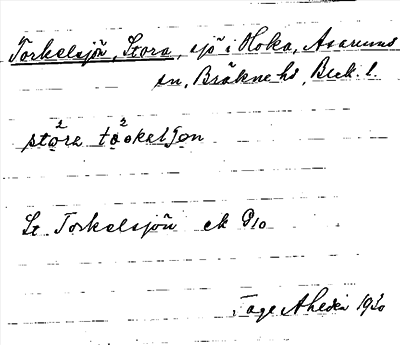 Torkelsjön, Stora, sjö i Hoka, Asarums
sn, Bräkne hd, Blek. l.
St. Torkelsjön ek 9/10
Tage Ahlén 1930